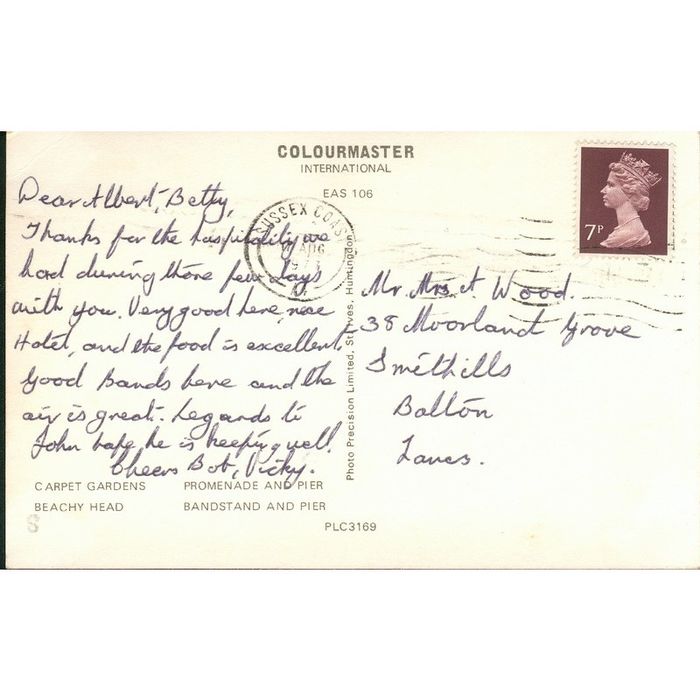 COLOURMASTER
INTERNATIONAL
EAS 106
Dear Albert, Betty,
Thanks for the hospitality we
had during those few days
with you. Very good here, nice
Hotel, and the food is excellent.
Good Bands here and the
air is great. Regards to
John hope he is keeping well.
Cheers Bob, Vicky.
CARPET GARDENS PROMENADE AND PIER
BEACHY HEAD BANDSTAND AND PIER
Photo Precision Limited, St. Ives, Huntingdon
SUSSEX COAST
AUG
7P
Mr. Mrs. A Wood.
38 Moorland Grove
Smithills
Bolton
Lancs.
PLC3169
S